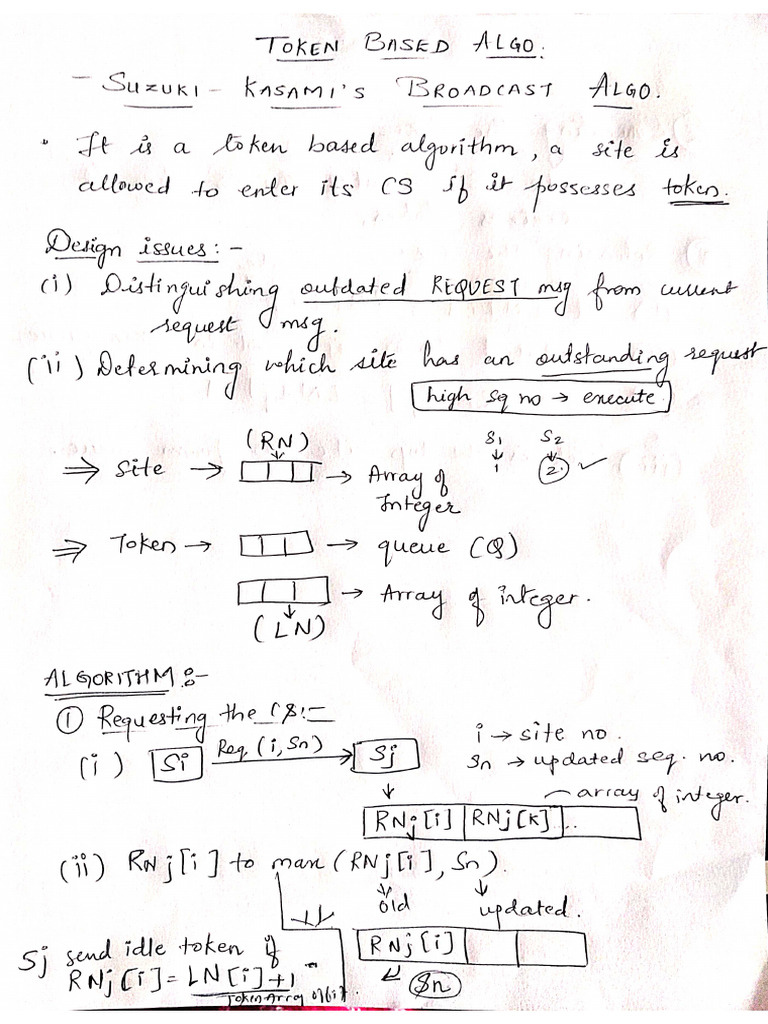 TOKEN BASED ALGO.
- SUZUKI - KASAMI'S BROADCAST ALGO.
• It is a token based algorithm, a site is
allowed to enter its CS if it possesses token.
Design issues: -
(i) Distinguishing outdated REQUEST msg from current
request msg.
(ii) Determining which site has an outstanding request
high sq no → execute
(RN)
S1 S2
⇒ Site → → Array of
Integer
1 2 ✓
⇒ Token → → queue (Q)
→ Array of integer.
(LN)
ALGORITHM :-
① Requesting the CS:-
(i) Si Req (i, Sn) Sj
i → site no.
Sn → updated seq. no.
array of integer.
RNj[i] RNj[k] ..
(ii) RNj[i] to max (RNj[i], Sn).
old updated.
Sj send idle token if
RNj[i] = LN[i]+1
Token Array of
RNj[i]
Sn